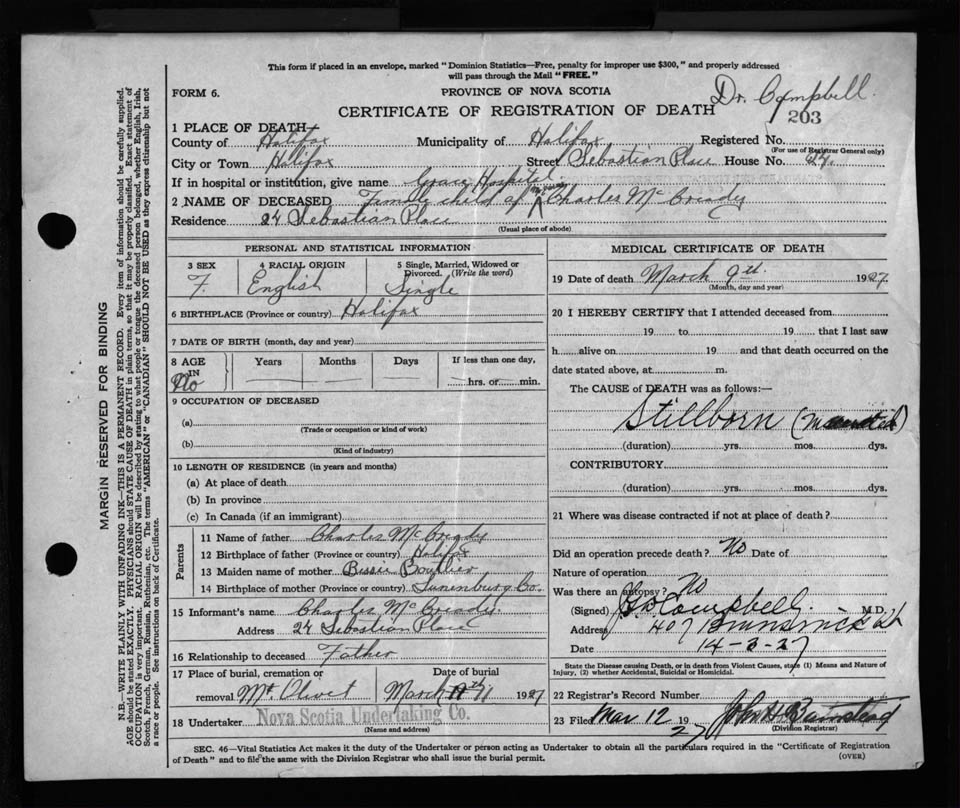 This form if placed in an envelope, marked "Dominion Statistics—Free, penalty for improper use $300," and properly addressed
will pass through the Mail "FREE."
FORM 6.
PROVINCE OF NOVA SCOTIA
Dr. Campbell.
CERTIFICATE OF REGISTRATION OF DEATH
203
1 PLACE OF DEATH
County of Halifax Municipality of Halifax Registered No.
(For use of Registrar General only)
City or Town Halifax Street Sebastian Place House No. 24.
If in hospital or institution, give name Grace Hospital.
2 NAME OF DECEASED Female child of Charles McCready
Residence 24 Sebastian Place
(Usual place of abode)
PERSONAL AND STATISTICAL INFORMATION
3 SEX 4 RACIAL ORIGIN 5 Single, Married, Widowed or
Divorced. (Write the word)
F. English Single
6 BIRTHPLACE (Province or country) Halifax
7 DATE OF BIRTH (month, day and year)
8 AGE Years Months Days If less than one day,
IN
No
hrs. or min.
9 OCCUPATION OF DECEASED
(a)
(Trade or occupation or kind of work)
(b)
(Kind of industry)
10 LENGTH OF RESIDENCE (in years and months)
(a) At place of death
(b) In province
(c) In Canada (if an immigrant)
Parents
11 Name of father Charles McCready
12 Birthplace of father (Province or country) Halifax
13 Maiden name of mother Bessie
14 Birthplace of mother (Province or country) Lunenburg Co.
15 Informant's name Charles McCready.
Address 24 Sebastian Place
16 Relationship to deceased Father
17 Place of burial, cremation or Date of burial
removal Mt. Olivet March 11 1927
18 Undertaker Nova Scotia Undertaking Co.
(Name and address)
MEDICAL CERTIFICATE OF DEATH
19 Date of death March 9th. 1927
(Month, day and year)
20 I HEREBY CERTIFY that I attended deceased from
19 to 19 that I last saw
h alive on 19 and that death occurred on the
date stated above, at m.
The CAUSE of DEATH was as follows:—
Stillborn
(duration) yrs. mos. dys.
CONTRIBUTORY
(duration) yrs. mos. dys.
21 Where was disease contracted if not at place of death?
Did an operation precede death? No Date of
Nature of operation
Was there an autopsy? No
(Signed) Campbell. M.D.
Address 407 Brunswick St
Date 14-3-27
State the Disease causing Death, or in death from Violent Causes, state (1) Means and Nature of
Injury, (2) whether Accidental, Suicidal or Homicidal.
22 Registrar's Record Number
23 Filed Mar 12 1927 John
(Division Registrar)
SEC. 46—Vital Statistics Act makes it the duty of the Undertaker or person acting as Undertaker to obtain all the particulars required in the "Certificate of Registration
of Death" and to file the same with the Division Registrar who shall issue the burial permit.
(OVER)
MARGIN RESERVED FOR BINDING
N.B.—WRITE PLAINLY WITH UNFADING INK—THIS IS A PERMANENT RECORD. Every item of information should be carefully supplied.
AGE should be stated EXACTLY. PHYSICIANS should STATE CAUSE OF DEATH in plain terms, so that it may be properly classified. Exact statement of
OCCUPATION is very important. RACIAL ORIGIN will be described by stating to what people or tongue the deceased person belonged, whether English, Irish,
Scotch, French, German, Russian, Ruthenian, etc. The terms "AMERICAN" or "CANADIAN" SHOULD NOT BE USED as they express citizenship but not
a race or people. See instructions on back of Certificate.